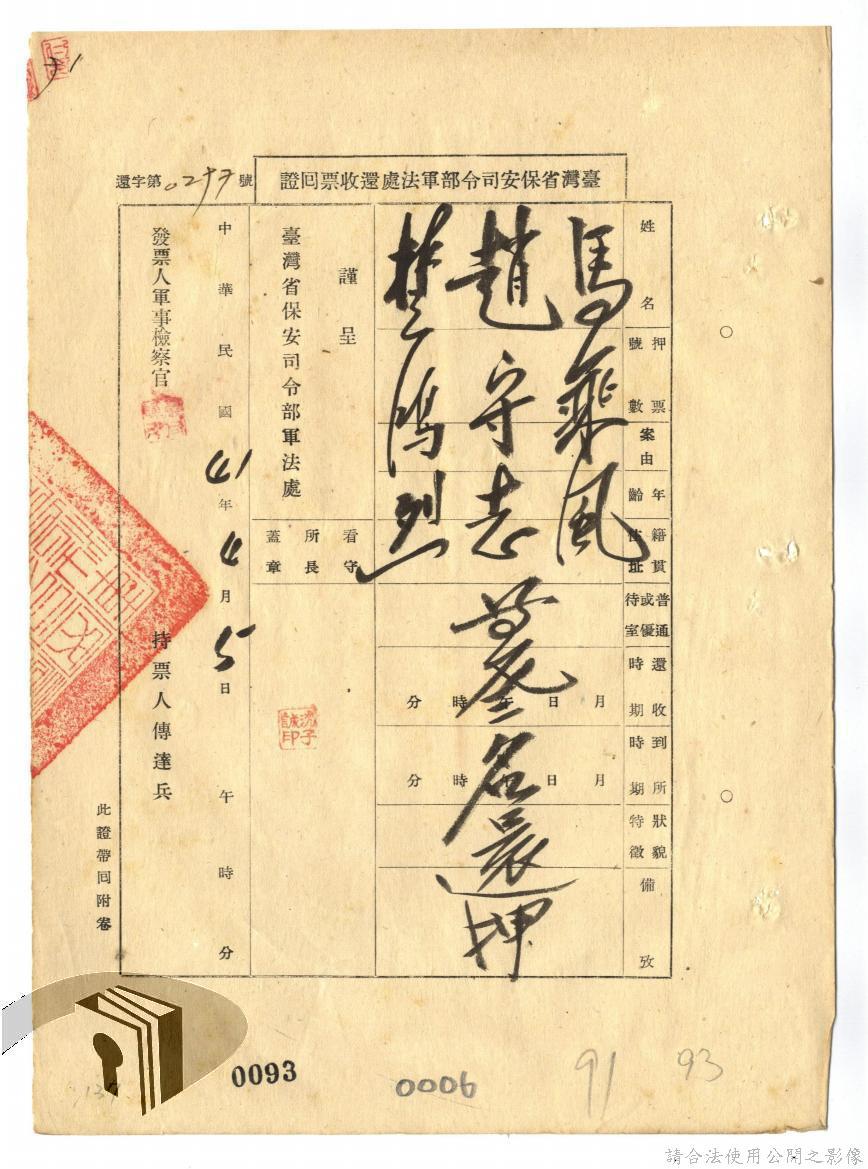 臺灣省保安司令部軍法處還收票回證
還字第0297號
姓名
押票號數
案由
年齡
籍貫住址
普通或優待室
還收時期
到所時期
狀貌特徵
備攷
馬乘風
趙守志等叁名晨還押
樊鴻烈
月日午時分
月日午時分
謹呈
臺灣省保安司令部軍法處
看守所長蓋章
沈子誠印
中華民國41年4月5日午時分
發票人軍事檢察官
持票人傳達兵
此證帶回附卷
0093
0006
91
93
請合法使用公開之影像